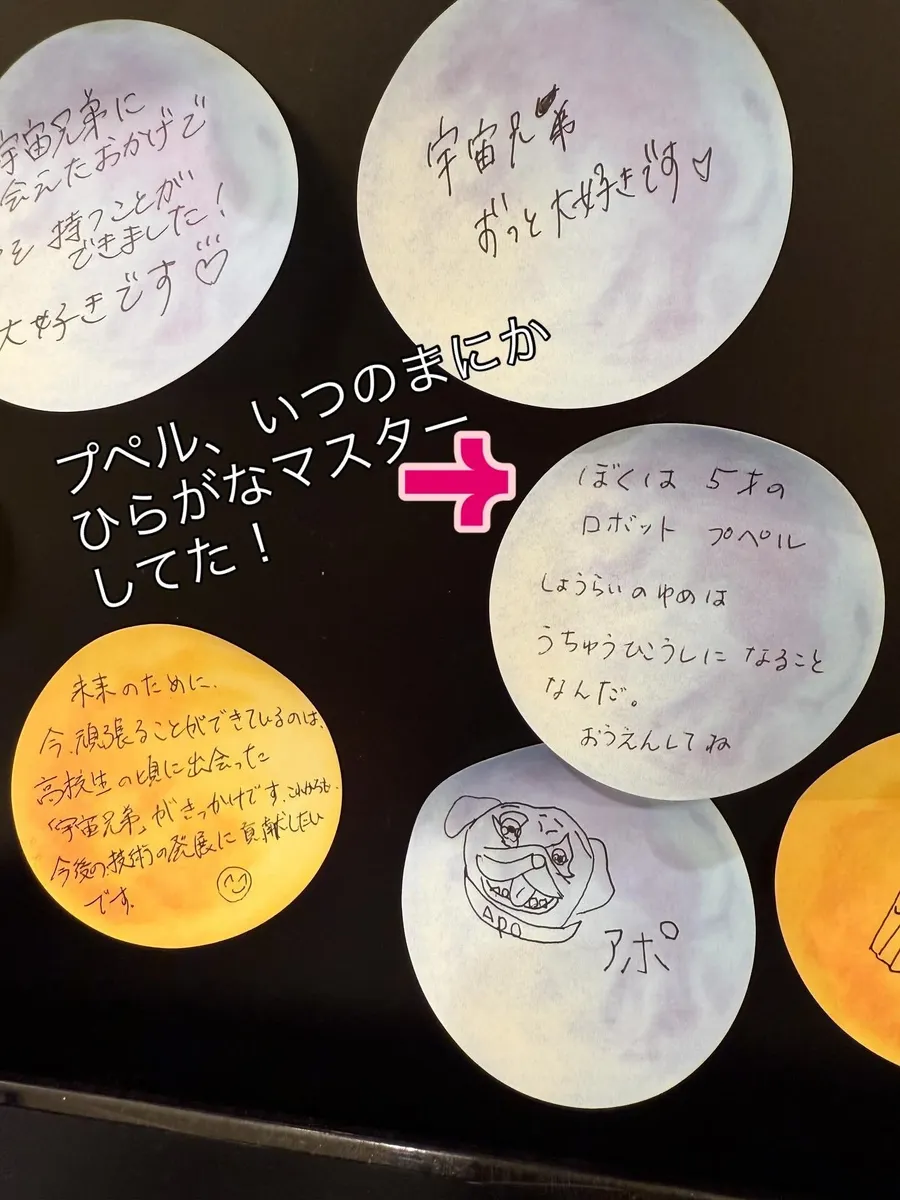 宇宙兄弟に
会えたおかげで
を持つことが
できました！
大好きです♡
宇宙兄弟
ずっと大好きです♡
プペル、いつのまにか
ひらがなマスター
してた！
ぼくは 5才の
ロボット プペル
しょうらいのゆめは
うちゅうひこうしに なること
なんだ。
おうえんしてね
未来のために、
今、頑張ることができているのは、
高校生の頃に出会った
「宇宙兄弟」がきっかけです。これからも、
今後の技術の発展に貢献したい
です。
APO
アポ